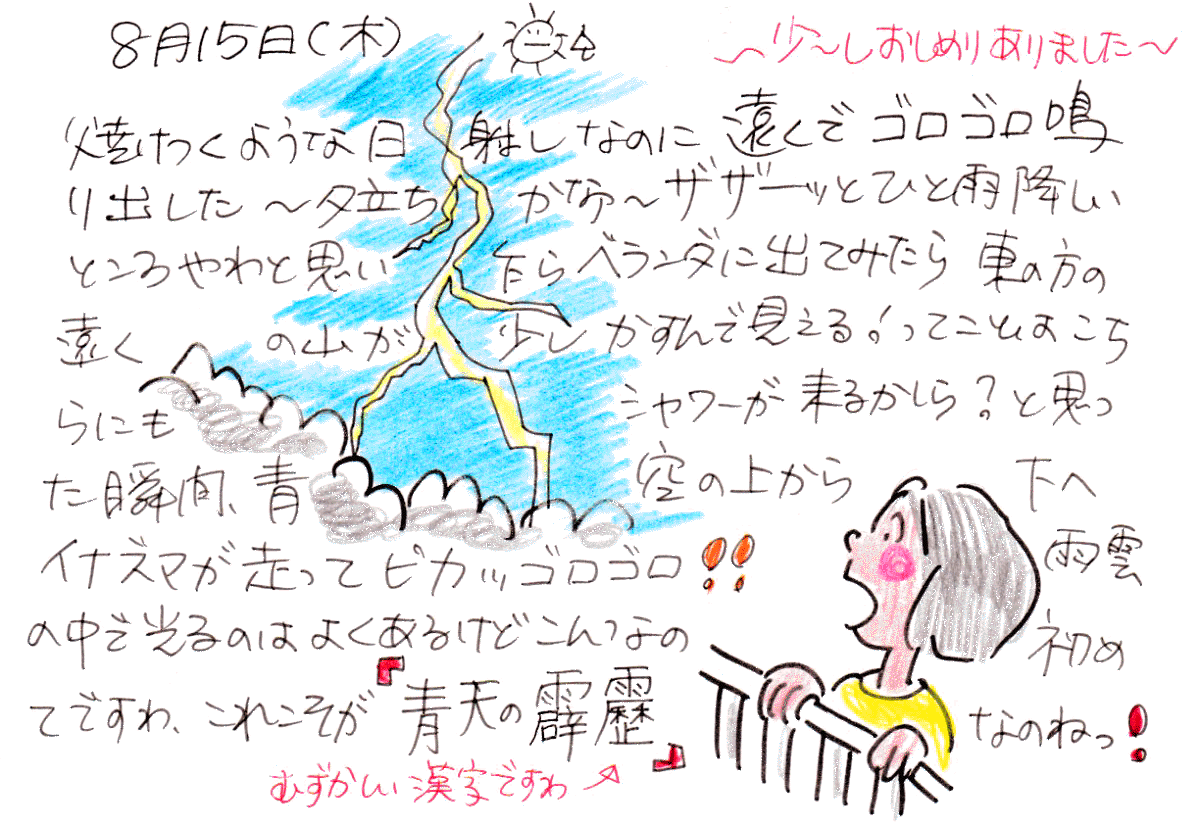 8月15日(木)
〜少〜しおしめりありました〜
焼けつくような日射しなのに遠くでゴロゴロ鳴
り出した〜夕立ちかなァ〜ザザーッとひと雨降しい
ところやわと思い乍らベランダに出てみたら東の方の
遠くの山が少しかすんで見える!ってことはこち
らにもシャワーが来るかしら?と思っ
た瞬間、青空の上から下へ
イナズマが走ってピカッゴロゴロ!!雨雲
の中で光るのはよくあるけどこんなの初め
てですわ、これこそが『青天の霹靂』なのねっ!
むずかしい漢字ですわ